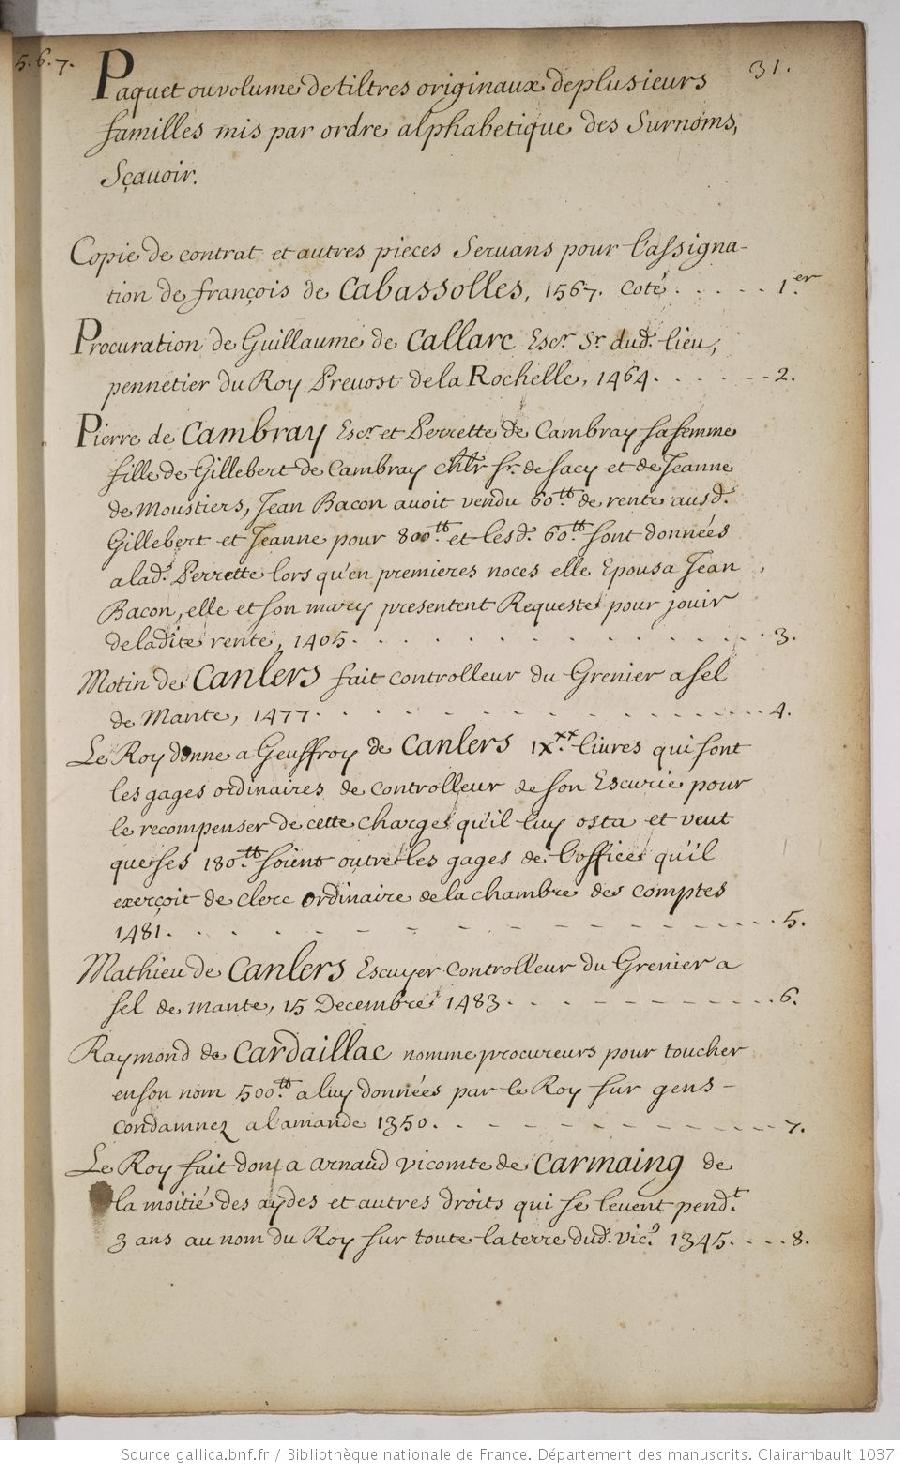 5.6.7.
31.
Paquet ou volume de tiltres originaux de plusieurs
familles mis par ordre alphabetique des Surnoms,
Sçavoir.
Copie de contrat et autres pieces Servans pour l'assigna-
tion de françois de Cabassolles, 1567. Coté . . . . . 1.er
Procuration de Guillaume de Callarc Escr. Sr. dud. lieu,
pennetier du Roy Prevost de la Rochelle, 1464. . . . . . . 2.
Pierre de Cambray Escr. et Perrette de Cambray sa femme
fille de Gillebert de Cambray chlr Sr. de sacy et de Jeanne
de Moustiers, Jean Bacon avoit vendu 60.tt de rente ausd.
Gillebert et Jeanne pour 800.tt et lesd. 60.tt sont données
a lad. Perrette lors qu'en premieres noces elle Epousa Jean
Bacon, elle et son mary presentent Requeste pour jouir
de ladite rente, 1405. . . . . . . . . . . . . . . 3.
Motin de Canlers fait controlleur du Grenier a sel
de Mante, 1477. . . . . . . . . . . . . . . 4.
Le Roy donne a Geuffroy de Canlers IX.xx livres qui sont
les gages ordinaires de controlleur de son Escurie pour
le recompenser de cette charge qu'il luy osta et veut
que ses 180.tt soient outre les gages de l'office qu'il
exerçoit de clerc ordinaire de la chambre des comptes
1481. . . . . . . . . . . . . . . . . 5.
Mathieu de Canlers Escuyer controlleur du Grenier a
sel de mante, 15 Decembre 1483. . . . . . . . . . 6.
Raymond de Cardaillac nomme procureurs pour toucher
en son nom 500.tt a luy données par le Roy sur gens-
condamnez a l'amande 1350. . . . . . . . . . . . 7.
Le Roy fait don a Arnaud vicomte de Carmaing de
la moitié des aydes et autres droits qui se levent pend.t
3 ans au nom du Roy sur toute la terre dud. vic.e 1345. . . . . 8.
Source gallica.bnf.fr / Bibliothèque nationale de France. Département des manuscrits. Clairambault 1037